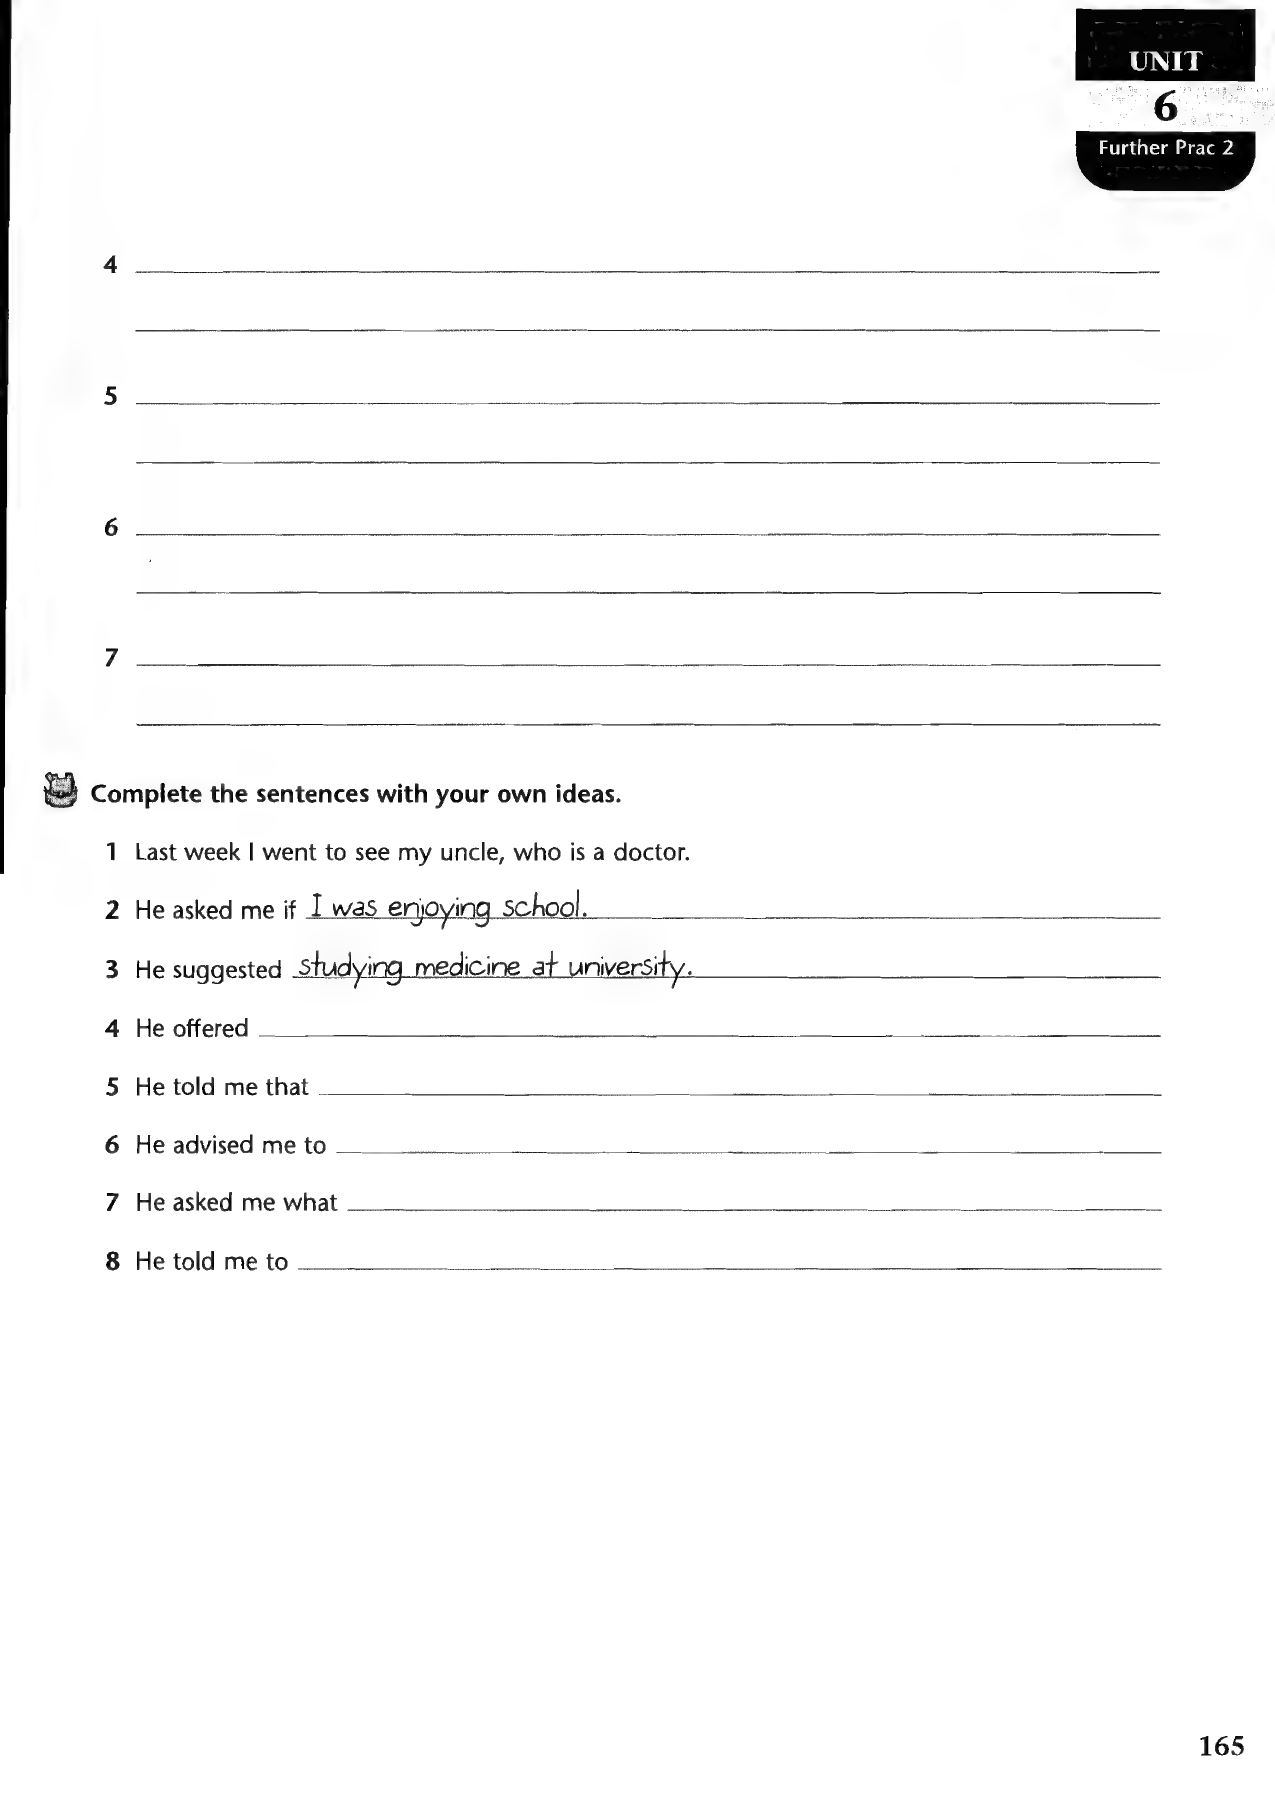 UNIT
6
Further Prac 2
4
5
6
7
Complete the sentences with your own ideas.
1 Last week I went to see my uncle, who is a doctor.
2 He asked me if I was enjoying school.
3 He suggested studying medicine at university.
4 He offered
5 He told me that
6 He advised me to
7 He asked me what
8 He told me to
165